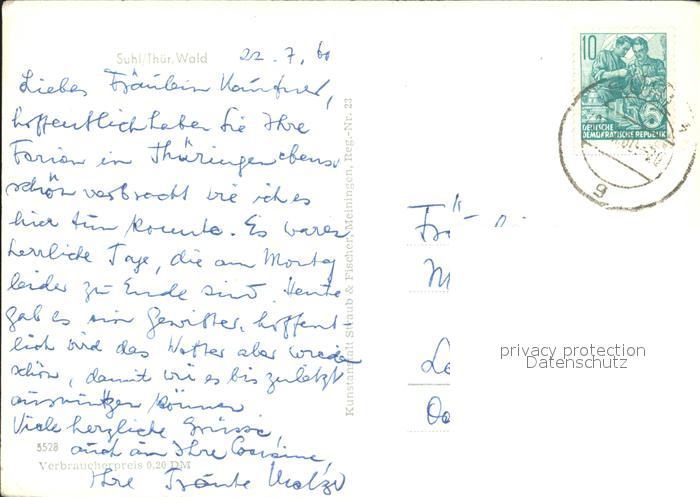 Suhl/Thür. Wald
22.7.60
Liebes Fräulein
hoffentlich haben Sie Ihre
Ferien in Thüringen ebenso
schön verbracht wie ich es
hier tun konnte. Es waren
herrliche Tage, die am Montag
leider zu Ende sind. Heute
gab es ein Gewitter, hoffent-
lich wird das Wetter aber wieder
schön, damit wir es bis zuletzt
ausnützen können
Viele herzliche Grüsse
auch an Ihre Cousine,
Ihre
5528
Verbraucherpreis 0,20 DM
Kunstanstalt Straub & Fischer, Meiningen, Reg.-Nr. 23
10
DEUTSCHE
DEMOKRATISCHE REPUBLIK
g
Frä
M
Le
privacy protection
Datenschutz